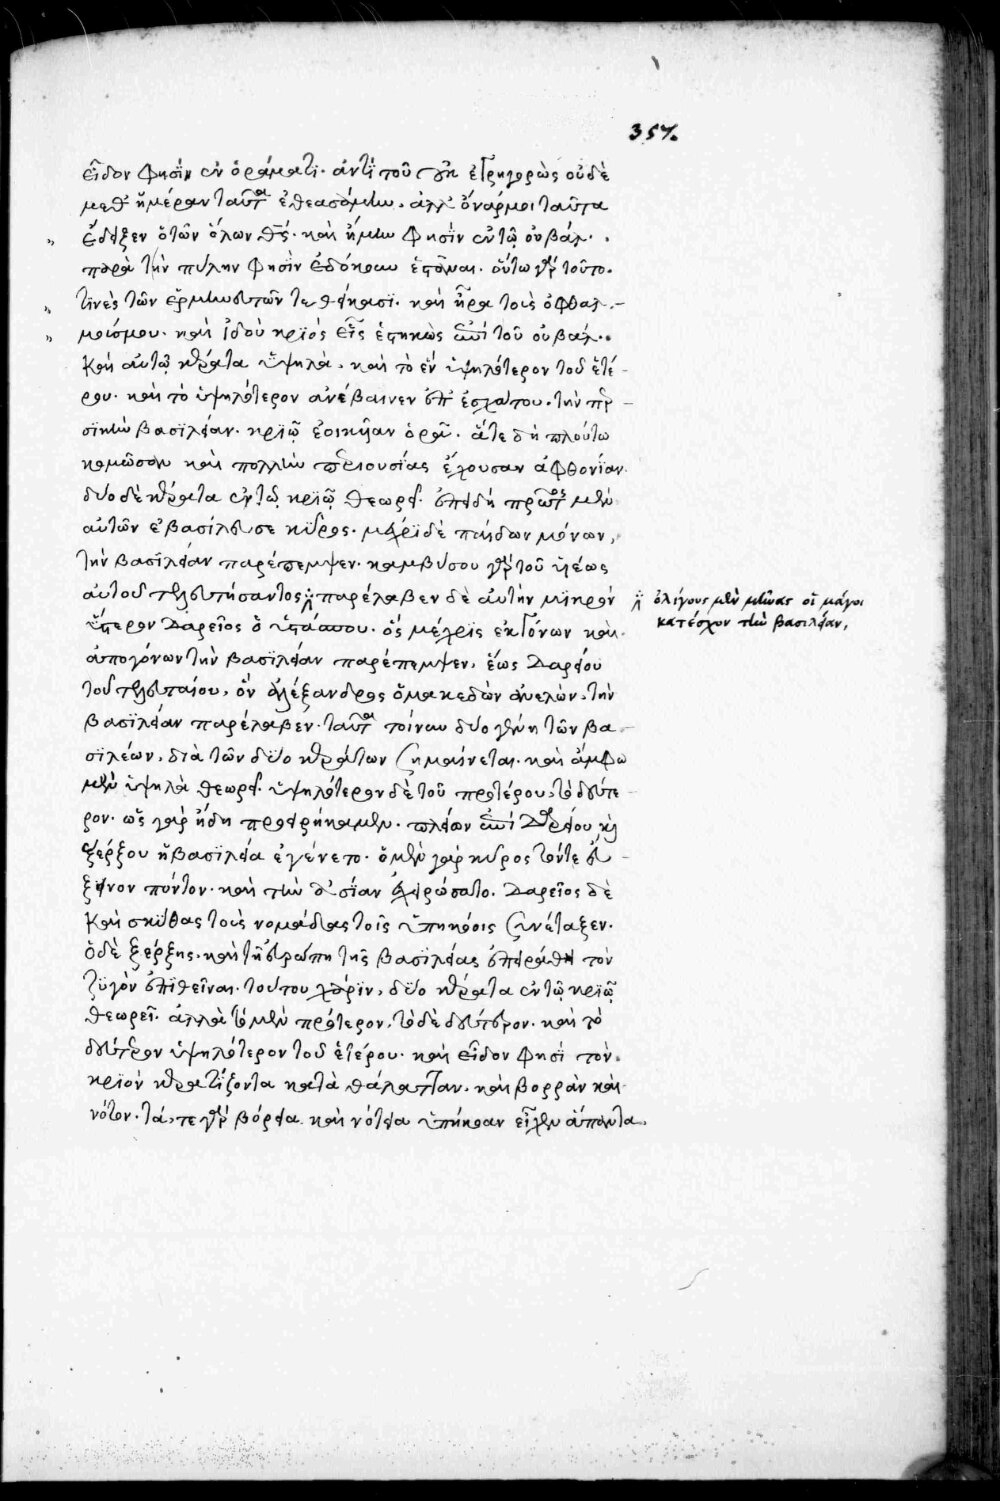 357.
εἶδον φησὶν ἐν ὁράματι· ἀντὶ τοῦ οὐκ ἐγρηγορὼς οὐδὲ
μεθ' ἡμέραν ταῦτα ἐθεασάμην. ἀλλ' ὄναρ μοι ταῦτα
ἔδειξεν ὁ τῶν ὅλων θς· καὶ ἤμην φησὶν ἐν τῷ οὐβάλ·
παρὰ τὴν πύλην φησὶν ἐδόκουν ἑστάναι· οὕτω γὰρ τοῦτο
τινὲς τῶν ἑρμηνευτῶν τεθείκασι· καὶ ἦρα τοὺς ὀφθαλ-
μούς μου· καὶ ἰδοὺ κριὸς εἷς ἑστηκὼς ἐπὶ τοῦ οὐβάλ·
καὶ αὐτῷ κέρατα ὑψηλὰ, καὶ τὸ ἓν ὑψηλότερον τοῦ ἑτέ-
ρου· καὶ τὸ ὑψηλότερον ἀνέβαινεν ἐπ' ἐσχάτου. τὴν περ-
σικὴν βασιλείαν· κριῷ ἐοικυῖαν ὁρᾷ· ἅτε δὴ πλούτω
κομῶσαν καὶ πολλὴν περιουσίας ἔχουσαν ἀφθονίαν.
δύο δὲ κέρατα ἐν τῷ κριῷ θεωρεῖ· ἐπειδὴ πρῶτος μὲν
αὐτῶν ἐβασίλευσε κῦρος· μέχρι δὲ παίδων μόνων,
τὴν βασιλείαν παρέπεμψεν· καμβύσου γὰρ τοῦ υἱέως
αὐτοῦ τελευτήσαντος παρέλαβεν δὲ αὐτὴν μικρὸν
ὕστερον Δαρεῖος ὁ ὑστάσπου· ὃς μέχρις ἐκγόνων καὶ
ἀπογόνων τὴν βασιλείαν παρέπεμψεν, ἕως Δαρείου
τοῦ τελευταίου, ὃν ἀλέξανδρος ὁ μακεδὼν ἀνελὼν, τὴν
βασιλείαν παρέλαβεν· ταῦτα τοίνυν δύο γένη τῶν βα-
σιλέων, διὰ τῶν δύο κεράτων σημαίνεται· καὶ ἄμφω
μὲν ὑψηλὰ θεωρεῖ· ὑψηλότερον δὲ τοῦ προτέρου, τὸ δεύτε-
ρον· ὡς γὰρ ἤδη προειρήκαμεν· πλείων ἐπὶ Δαρείου καὶ
ξέρξου ἡ βασιλεία ἐγένετο· ὁ μὲν γὰρ κῦρος τόντε εὔ-
ξεινον πόντον· καὶ τὴν ἀσίαν ἐχειρώσατο. Δαρεῖος δὲ
καὶ σκύθας τοὺς νομάδας τοῖς ὑπηκόοις συνέταξεν.
ὁ δὲ ξέρξης, καὶ τῇ εὐρώπῃ τῆς βασιλείας ἐπειράθη τὸν
ζυγὸν ἐπιθεῖναι· τούτου χάριν, δύο κέρατα ἐν τῷ κριῷ
θεωρεῖ· ἀλλὰ τὸ μὲν πρότερον, τὸ δὲ δεύτερον· καὶ τὸ
δεύτερον ὑψηλότερον τοῦ ἑτέρου· καὶ εἶδον φησὶ τὸν
κριὸν κερατίζοντα κατὰ θάλατταν, καὶ βορρὰν καὶ
νότον· τά, τε γὰρ βόρεια καὶ νότεια ὑπήκοαν εἶχεν ἅπαντα.
ὀλίγους μὲν μῆνας οἱ μάγοι
κατέσχον τὴν βασιλείαν,